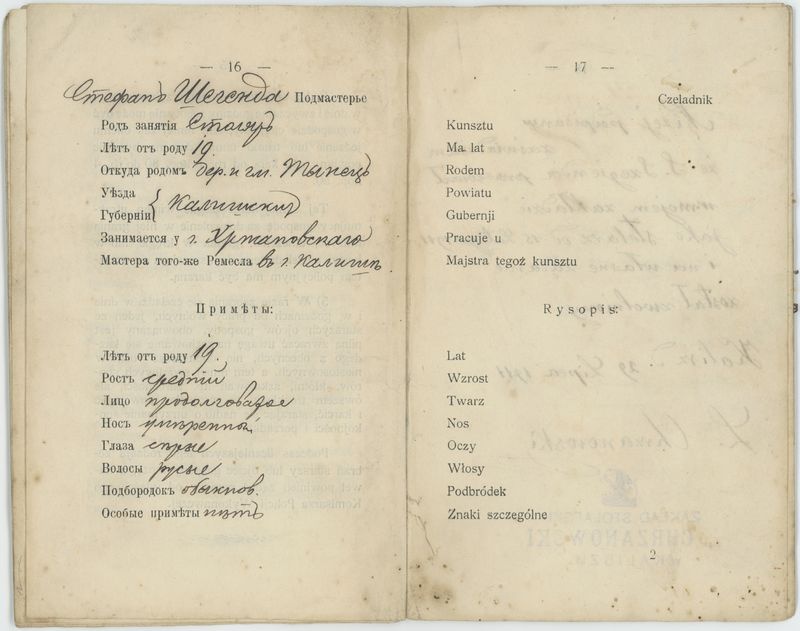 — 16 —
Стефанъ Шегенда Подмастерье
Родъ занятія Столяръ
Лѣтъ отъ роду 19.
Откуда родомъ дер. и гм. Тынецъ
Уѣзда
Губерніи Калишскій
Занимается у г. Хржановскаго
Мастера того-же Ремесла въ г. Калишѣ.
Примѣты:
Лѣтъ отъ роду 19.
Ростъ средній
Лицо продолговатое
Носъ умѣренный
Глаза сѣрые
Волосы русые
Подбородокъ обыкнов.
Особые примѣты нѣтъ
— 17 —
Czeladnik
Kunsztu
Ma lat
Rodem
Powiatu
Gubernji
Pracuje u
Majstra tegoż kunsztu
Rysopis:
Lat
Wzrost
Twarz
Nos
Oczy
Włosy
Podbródek
Znaki szczególne
2